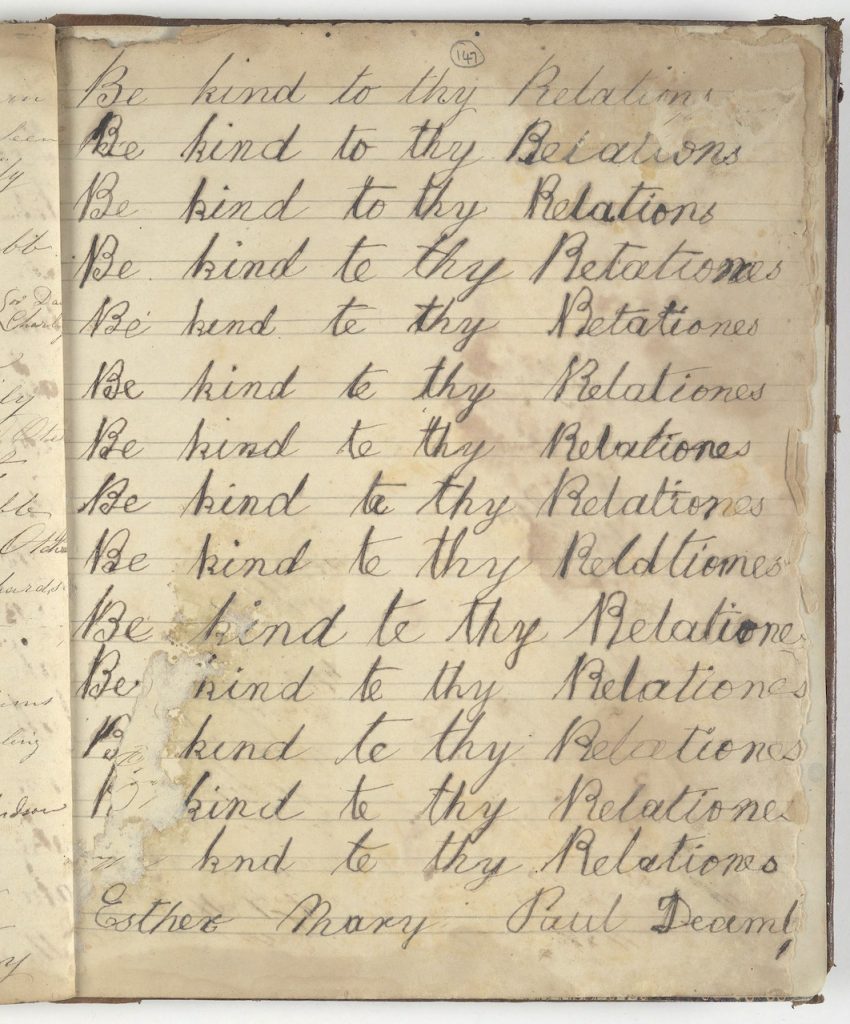 147
Be kind to thy Relations
Be kind to thy Relations
Be kind to thy Relations
Be kind te thy Retationes
Be kind te thy Retationes
Be kind te thy Relationes
Be kind te thy Relationes
Be kind te thy Relationes
Be kind te thy Reldtiomes
Be kind te thy Relatione
Be kind te thy Relationes
B kind te thy Relationes
kind te thy Relationes
knd te thy Relationes
Esther Mary Paul Decmb